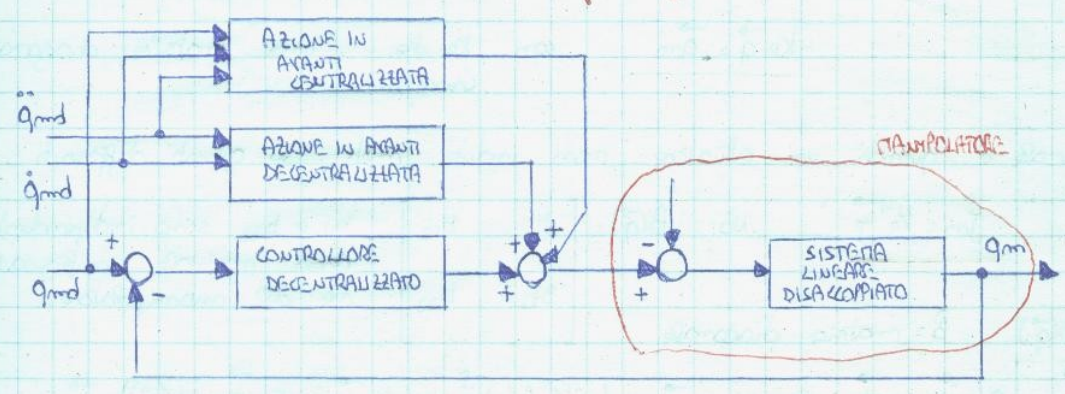 AZIONE IN
AVANTI
CENTRALIZZATA
q̈md
AZIONE IN AVANTI
DECENTRALIZZATA
MANIPOLATORE
q̇md
+
+
+
-
CONTROLLORE
DECENTRALIZZATO
SISTEMA
LINEARE
DISACCOPPIATO
qm
qmd
-
+
+